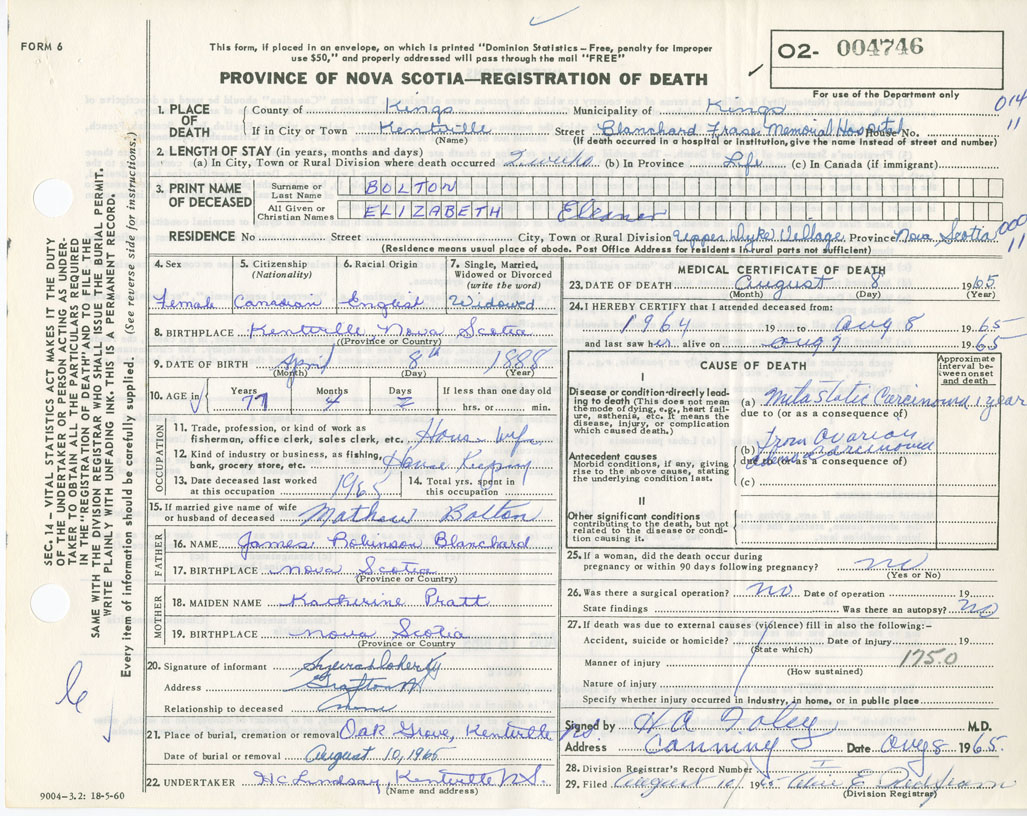 FORM 6
This form, if placed in an envelope, on which is printed "Dominion Statistics – Free, penalty for improper
use $50," and properly addressed will pass through the mail "FREE"
PROVINCE OF NOVA SCOTIA—REGISTRATION OF DEATH
02- 004746
For use of the Department only
014
11
1. PLACE OF DEATH County of Kings Municipality of Kings
If in City or Town Kentville Street Blanchard Fraser Memorial Hospital House No.
(Name) (If death occurred in a hospital or institution, give the name instead of street and number)
2. LENGTH OF STAY (in years, months and days)
(a) In City, Town or Rural Division where death occurred 2 weeks (b) In Province Life (c) In Canada (if immigrant)
3. PRINT NAME OF DECEASED Surname or Last Name BOLTON
All Given or Christian Names ELIZABETH Eleanor
RESIDENCE No Street City, Town or Rural Division Upper Dyke Village Province Nova Scotia
000
11
(Residence means usual place of abode. Post Office Address for residents in rural parts not sufficient)
4. Sex 5. Citizenship (Nationality) 6. Racial Origin 7. Single, Married, Widowed or Divorced (write the word)
Female Canadian English Widowed
8. BIRTHPLACE Kentville Nova Scotia
(Province or Country)
9. DATE OF BIRTH April 8th 1888
(Month) (Day) (Year)
10. AGE in Years Months Days If less than one day old
77 4 hrs. or min.
OCCUPATION
11. Trade, profession, or kind of work as
fisherman, office clerk, sales clerk, etc. House Wife
12. Kind of industry or business, as fishing,
bank, grocery store, etc. House Keeping
13. Date deceased last worked at this occupation 1965 14. Total yrs. spent in this occupation
15. If married give name of wife or husband of deceased Mathew Bolton
FATHER
16. NAME James Robinson Blanchard
17. BIRTHPLACE Nova Scotia
(Province or Country)
MOTHER
18. MAIDEN NAME Katherine Pratt
19. BIRTHPLACE Nova Scotia
(Province or Country)
20. Signature of informant
Address Grafton
Relationship to deceased
21. Place of burial, cremation or removal Oak Grove, Kentville
Date of burial or removal August 10, 1965
22. UNDERTAKER H C Lindsay, Kentville N.S.
(Name and address)
9004-3.2: 18-5-60
MEDICAL CERTIFICATE OF DEATH
23. DATE OF DEATH August 8 1965
(Month) (Day) (Year)
24. I HEREBY CERTIFY that I attended deceased from:
1964 19 to Aug 8 1965
and last saw her alive on Aug 7 1965
CAUSE OF DEATH
Approximate interval between onset and death
I
Disease or condition directly leading to death (This does not mean the mode of dying, e.g., heart failure, asthenia, etc. It means the disease, injury, or complication which caused death.)
(a) Metastatic Carcinoma 1 year
due to (or as a consequence of)
Antecedent causes
Morbid conditions, if any, giving rise to the above cause, stating the underlying condition last.
(b) From Ovarian Carcinoma
due to (or as a consequence of)
(c)
II
Other significant conditions
contributing to the death, but not related to the disease or condition causing it.
25. If a woman, did the death occur during
pregnancy or within 90 days following pregnancy? no
(Yes or No)
26. Was there a surgical operation? no Date of operation 19
State findings Was there an autopsy? no
27. If death was due to external causes (violence) fill in also the following:-
Accident, suicide or homicide? Date of injury 19
(State which)
Manner of injury 175.0
(How sustained)
Nature of injury
Specify whether injury occurred in industry, in home, or in public place
Signed by H A Foley M.D.
Address Canning Date Aug 8 1965.
28. Division Registrar's Record Number
29. Filed August 10 1965
(Division Registrar)
SEC. 14 – VITAL STATISTICS ACT MAKES IT THE DUTY
OF THE UNDERTAKER OR PERSON ACTING AS UNDER-
TAKER TO OBTAIN ALL THE PARTICULARS REQUIRED
IN THE "REGISTRATION OF DEATH" AND TO FILE THE
SAME WITH THE DIVISION REGISTRAR WHO SHALL ISSUE THE BURIAL PERMIT.
WRITE PLAINLY WITH UNFADING INK. THIS IS A PERMANENT RECORD.
Every item of information should be carefully supplied. (See reverse side for instructions.)